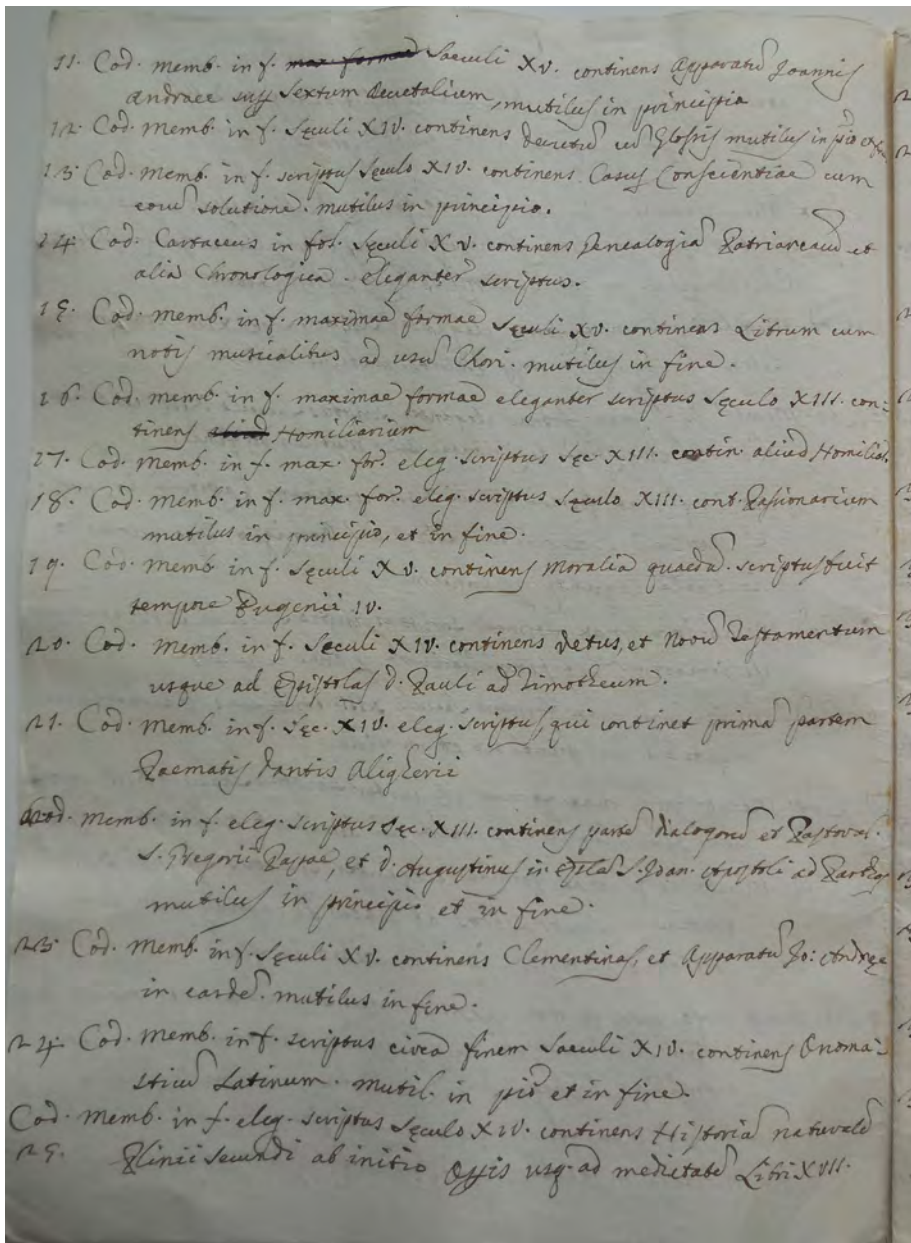 11. Cod. memb. in f. max formae Saeculi XV. continens Apparatũ Joannis
Andraee sup Sextum decretalium, mutilus in principio
12. Cod. Memb. in f. Sęculi XIV. continens decretũ cũ Glossis mutilus in pīo et fin
13. Cod. Memb. in f. scriptus Sęculo XIV. continens Casus Conscientiae cum
eoru͂ solutione. mutilus in principio.
14 Cod. Cartaceus in fol. Sęculi XV. continens Genealogia͂ Patriarcaru͂ et
alia Chronologica. eleganter scriptus.
15. Cod. memb. in f. maximae formae Sęculi XV. continens Librum cum
notis musicalibus ad usu͂ Chori. mutilus in fine.
16. Cod. memb. in f. maximae formae eleganter scriptus Sęculo XIII. con:
tinens aliud Homiliarium
17. Cod. Memb. in f. max. for. eleg. scriptus Sęc. XIII. contin. aliud Homiliar.
18. Cod. Memb. in f. max. for. eleg. scriptus Sęculo XIII. cont. Passionarium
mutilus in principio, et in fine.
19. Cod. Memb in f. Sęculi XV. continens Moralia quaeda͂. scriptus fuit
tempore Eugenii IV.
20. Cod. memb. in f. Saeculi XIV. continens Vetus, et Novu͂ Testamentum
usque ad Epistolas D. Pauli ad Timotheum.
21. Cod. Memb. in f. Sęc. XIV. eleg. scriptus, qui continet prima͂ partem
Poematis Dantis Aligherii
Cod. memb. in f. eleg. scriptus Sęc. XIII. continens parte͂ dialogoru͂ et Pastoral.
S. Gregorii Papae, et D. Augustinus in Epl͂a͂ S. Joan. Apostoli ad Parthos
mutilus in principio et in fine.
23. Cod. Memb. in f. Sęculi XV. continens Clementinas, et Apparatu͂ Jo: Andręę
in easde͂. mutilus in fine.
24. Cod. Memb. in f. scriptus circa finem Saeculi XIV. continens Onoma:
sticu͂ Latinum. mutil. in pīo et in fine.
Cod. memb. in f. eleg. scriptus Sęculo XIV. continens Historia͂ naturale͂
25. Plinii Secundi ab initio Opis usq. ad medietate͂ Libri XVII.